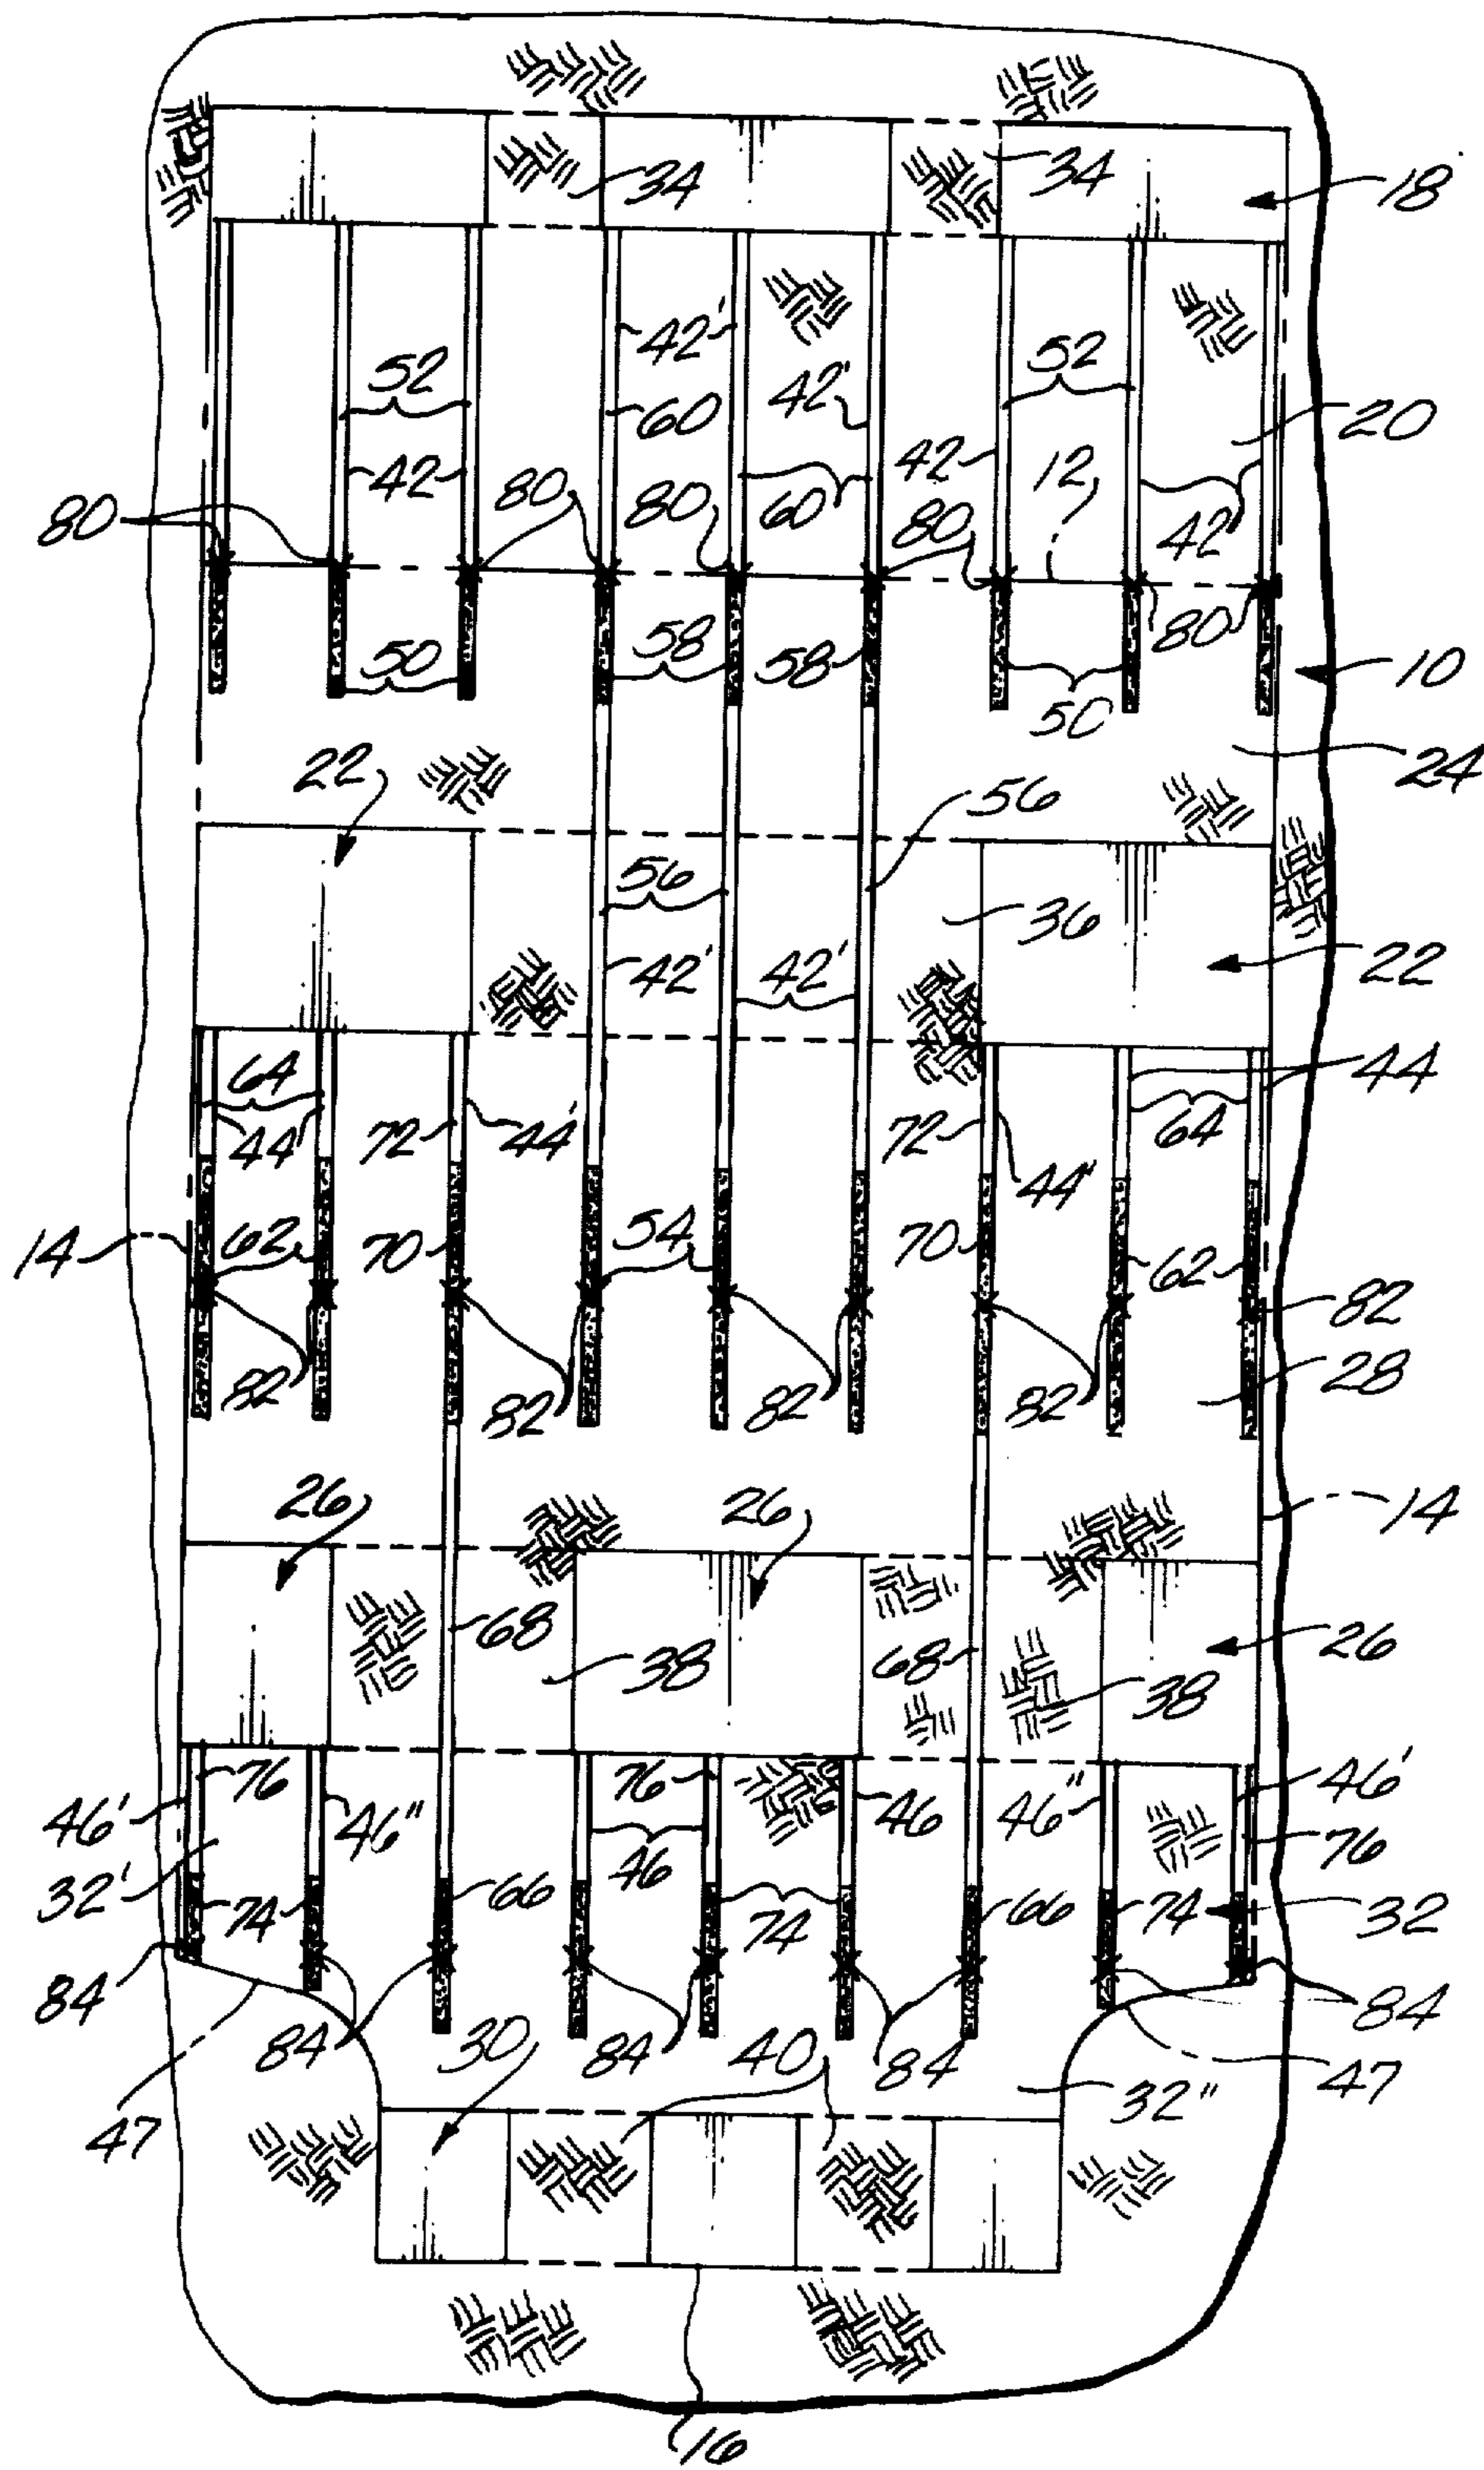 34
34
18
42'
52
52
42'
60
20
42
42
12
80
80
80
60
80
42
80
50
58
58
50
10
22
24
56
56
36
42'
42'
22
64
44
72
44'
72
44"
64
44
14
62
70
54
70
62
82
82
82
82
82
28
26
26
14
68
38
68
38
26
76
76
46'
46"
46
46
46"
46'
76
32'
74
66
74
66
74
32
84
84
30
84
40
84
84
47
47
32"
16